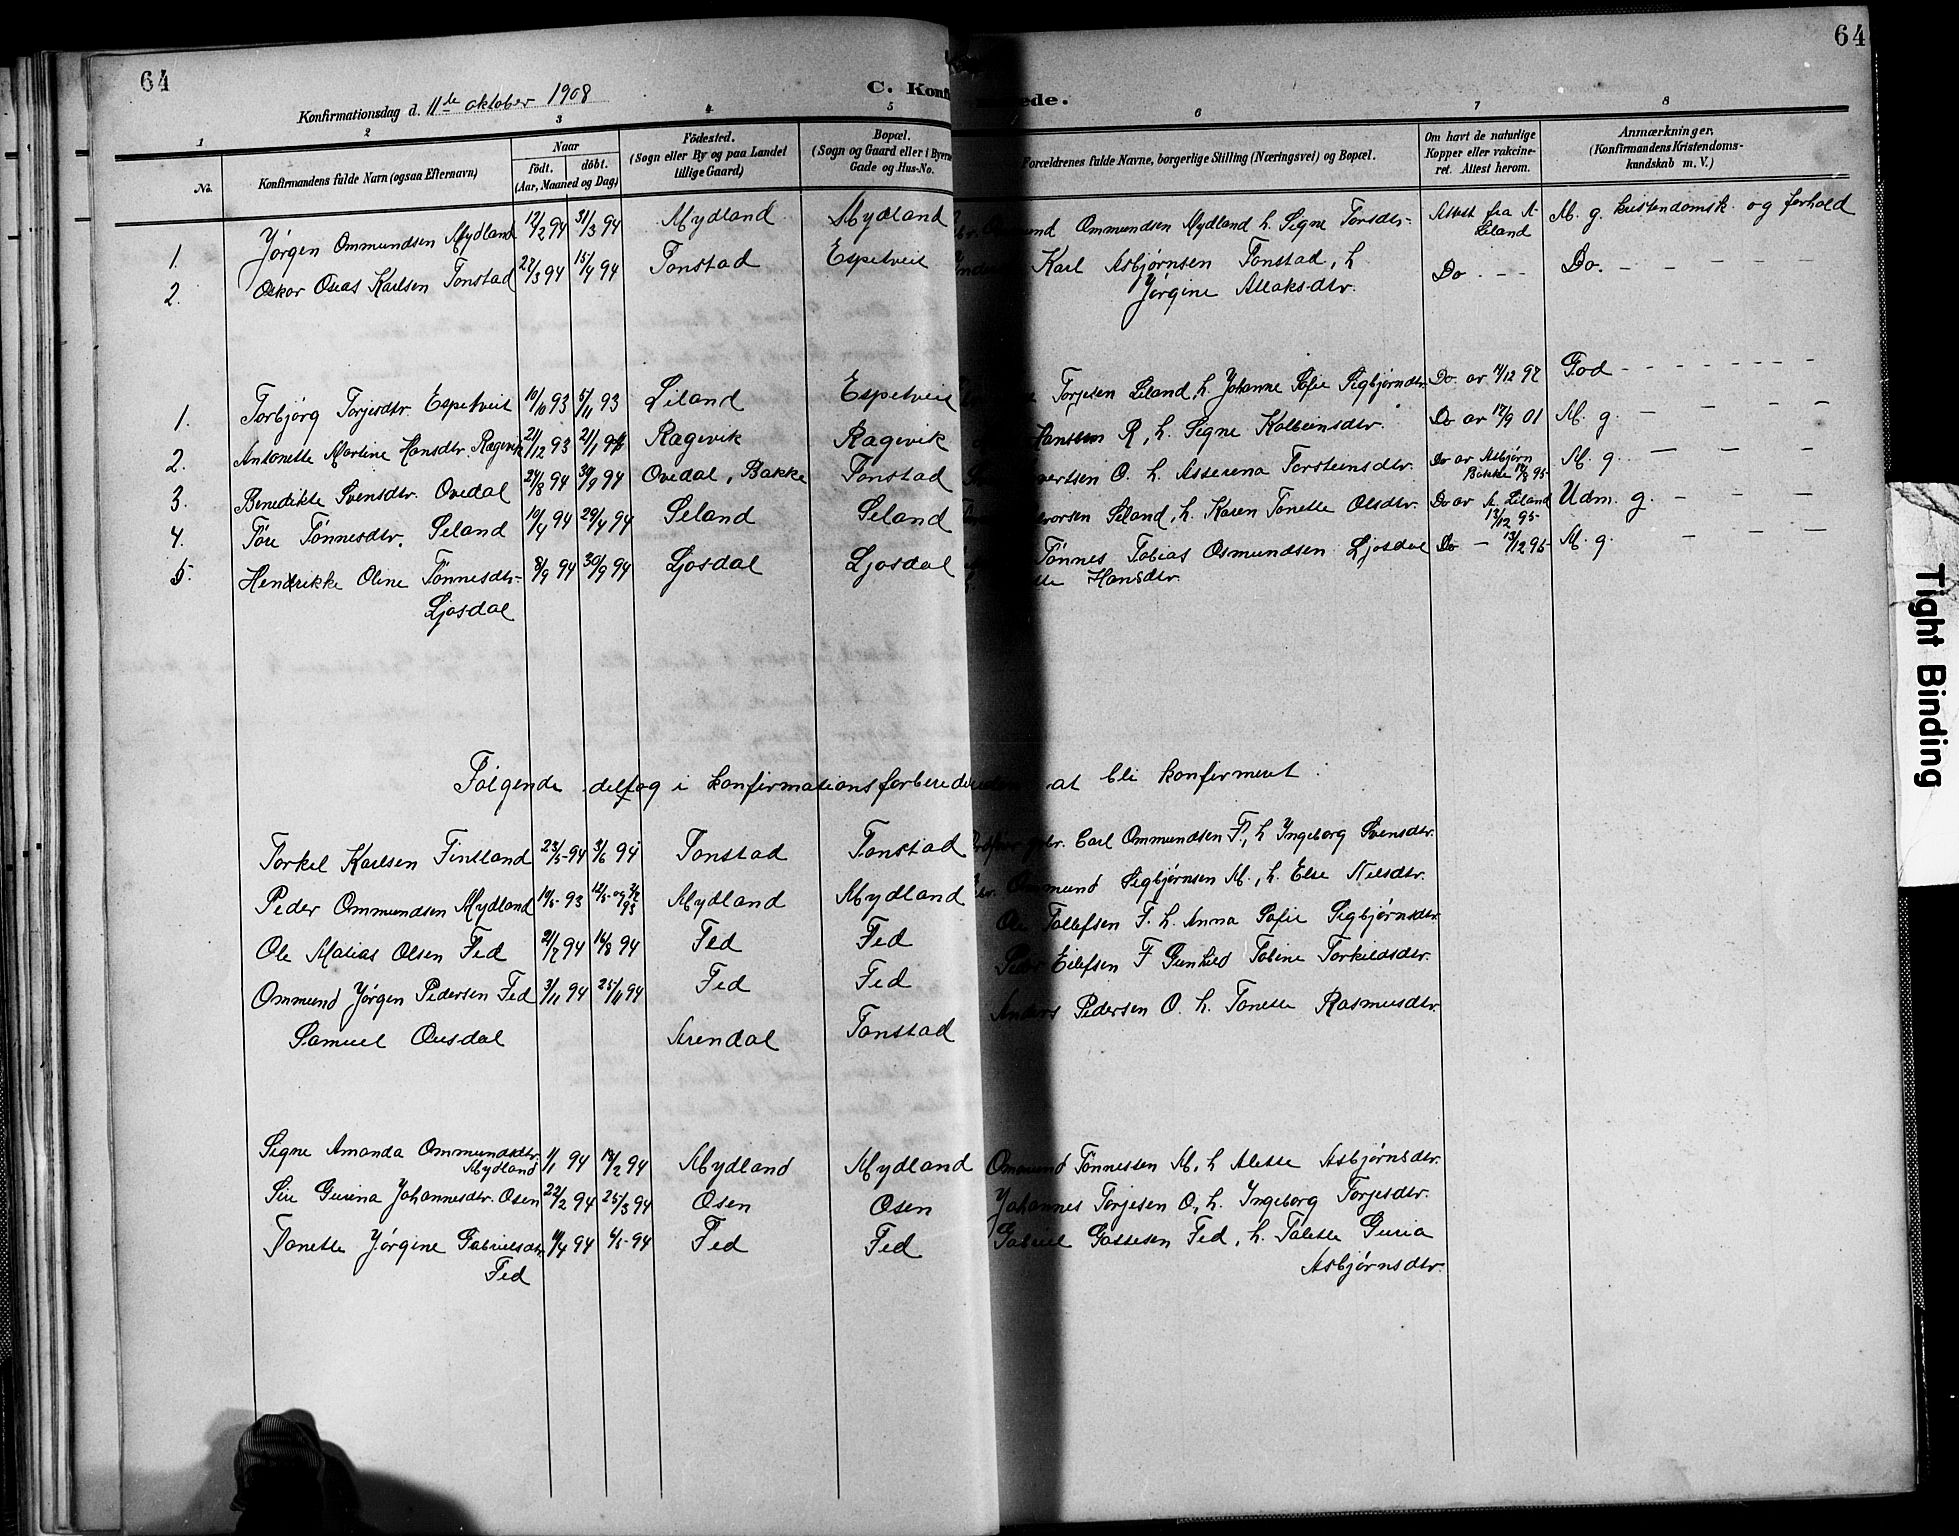 64
64
Konfirmationsdag d. 11te oktober 1908
C. Konfi
ede.
1 2 3 4 5 6 7 8
No.
Konfirmandens fulde Navn (ogsaa Efternavn)
Naar
födt. döbt.
(Aar, Maaned og Dag)
Födested.
(Sogn eller By og paa Landet
tillige Gaard)
Bopæl.
(Sogn og Gaard eller i Byerne
Gade og Hus-No.
Forældrenes fulde Navne, borgerlige Stilling (Næringsvei) og Bopæl.
Om havt de naturlige
Kopper eller vakcine-
ret. Attest herom.
Anmærkninger,
(Konfirmandens Kristendoms-
kundskab m. V.)
1. Jørgen Ommundsen Mydland 12/2 94 31/3 94 Mydland Mydland Ommundsen Mydland h. Signe Torsdtr. Attest fra A. Liland M. g. kristendomsk. og forhold
2. Oskar Oseas Karlsen Tonstad 27/3 94 15/4 94 Tonstad Espetveit Karl Asbjørnsen Tonstad, h.
Jørgine Aslaksdtr. Do - - Do. - - - - -
1. Torbjørg Torjesdtr. Espetveit 10/10 93 5/11 93 Liland Espetveit Torjesen Liland, h. Johanne Sofie Sigbjørnsdtr. Do av 11/12 97 God - - - - -
2. Antonette Martine Hansdtr. Ragevik 21/12 93 21/1 94 Ragevik Ragevik Hanssen R, h. Signe Kolbeinsdtr. Do av 17/9 01 M. g. - - - -
3. Benedikte Svensdtr. Ovedal 27/8 94 30/9 94 Ovedal, Bakke Tonstad O. h. Asserena Torsteinsdtr. Do av Asbjørn
Bakke 17/8 95 M. g. - - - -
4. Töre Tönnesdtr. Seland 10/4 94 29/4 94 Seland Seland Seland, h. Karen Tonette Olsdtr. Do av A. Liland
13/12 95 Udm. g. - - -
5. Hendrikke Oline Tönnesdtr.
Ljosdal 8/9 94 30/9 94 Ljosdal Ljosdal Tönnes Tobias Osmundsen Ljosdal
Hansdtr. Do - 13/12 95 M. g. - - -
Følgende deltog i konfirmationsforberedelsen at bli konfirmert:
Torkel Karlsen Fintland 23/5 94 3/6 94 Tonstad Tonstad Carl Ommundsen F, h. Ingeborg Svensdtr.
Peder Ommundsen Mydland Mydland Mydland Ommund Sigbjørnsen M., h. Else Nilsdtr.
Ole Matias Olsen Fed 21/7 94 12/8 94 Fed Fed Ole Tollefsen F. h. Anna Sofie Sigbjørnsdtr.
Ommund Jørgen Pedersen Fed 3/11 94 25/11 94 Fed Fed Peder Eilefsen F Gunhild Tobine Torkildsdtr.
Samuel Ousdal Arendal Tonstad Anders Pedersen O. h. Tonette Rasmusdtr.
Signe Amanda Ommundsdtr.
Mydland 1/1 94 18/2 94 Mydland Mydland Ommund Tönnessen M, h Alette Asbjørnsdtr.
Siri Gurina Johannesdtr. Osen 22/2 94 25/3 94 Osen Osen Johannes Torjesen O, h. Ingeborg Torjesdtr.
Tonette Jørgine Gabrielsdtr.
Fed 11/4 94 6/5 94 Fed Fed Gabriel Gattesen Fed, h. Talette Guria
Asbjørnsdtr.
Tight Binding